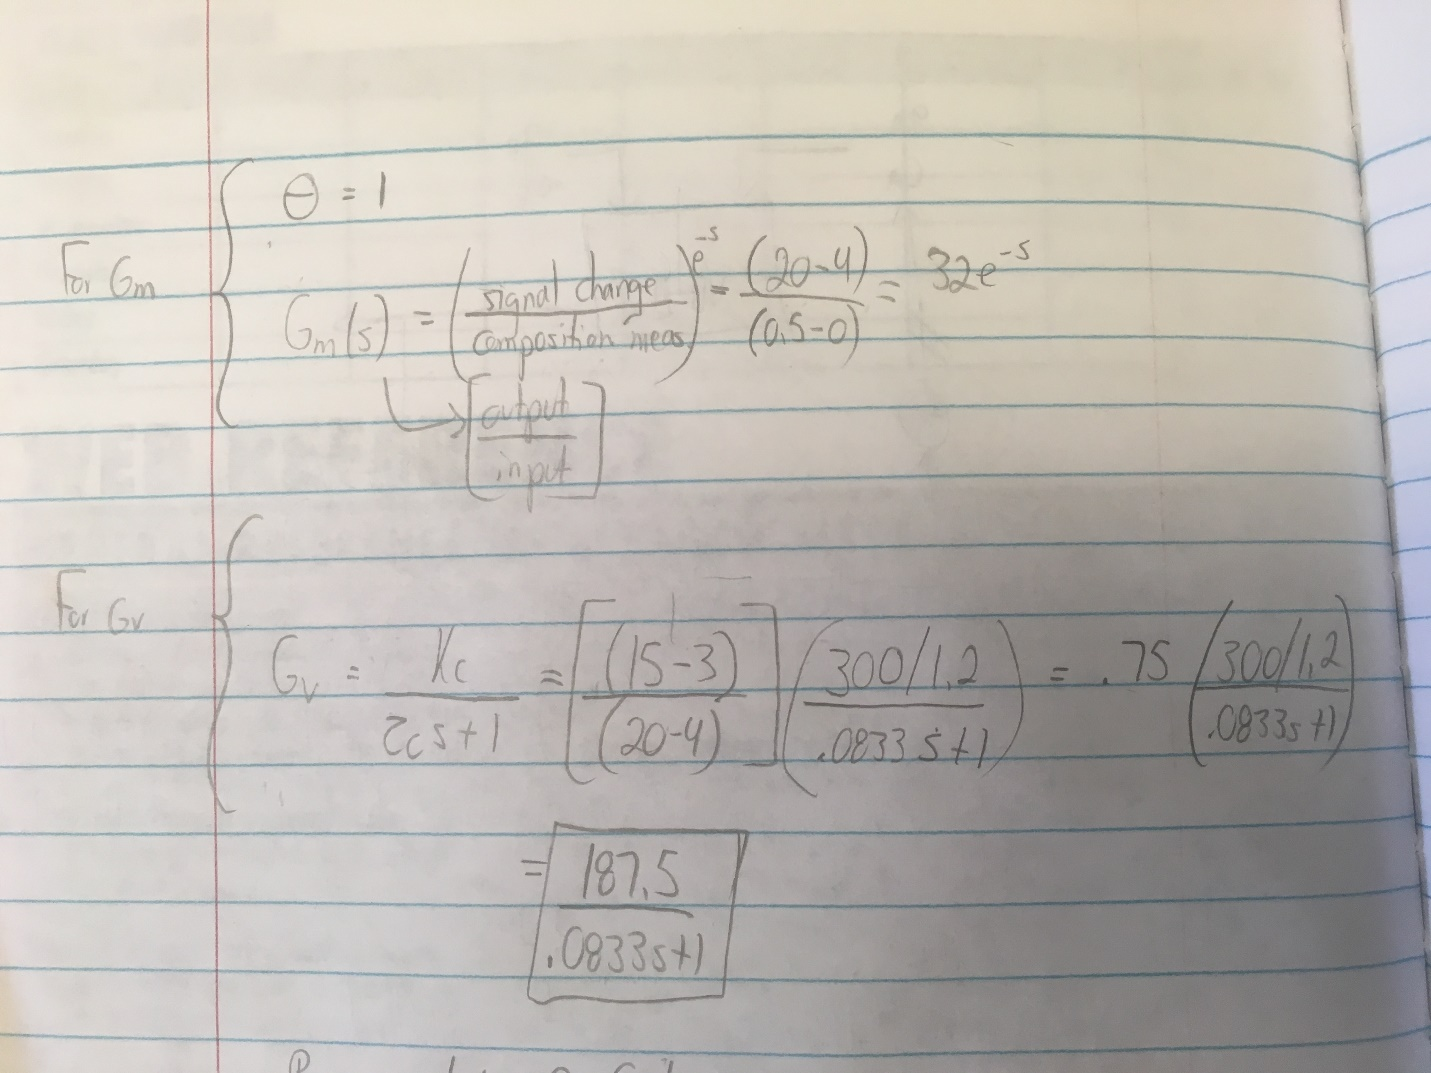 For Gm
θ = 1
Gm(s) = (signal change / composition meas) e^-s = (20-4) / (0.5-0) = 32e^-s
[output / input]
For Gv
Gv = Kc / τcs+1 = [(15-3) / (20-4)] (300/1.2 / .0833s+1) = .75 (300/1.2 / .0833s+1)
= 187.5 / .0833s+1